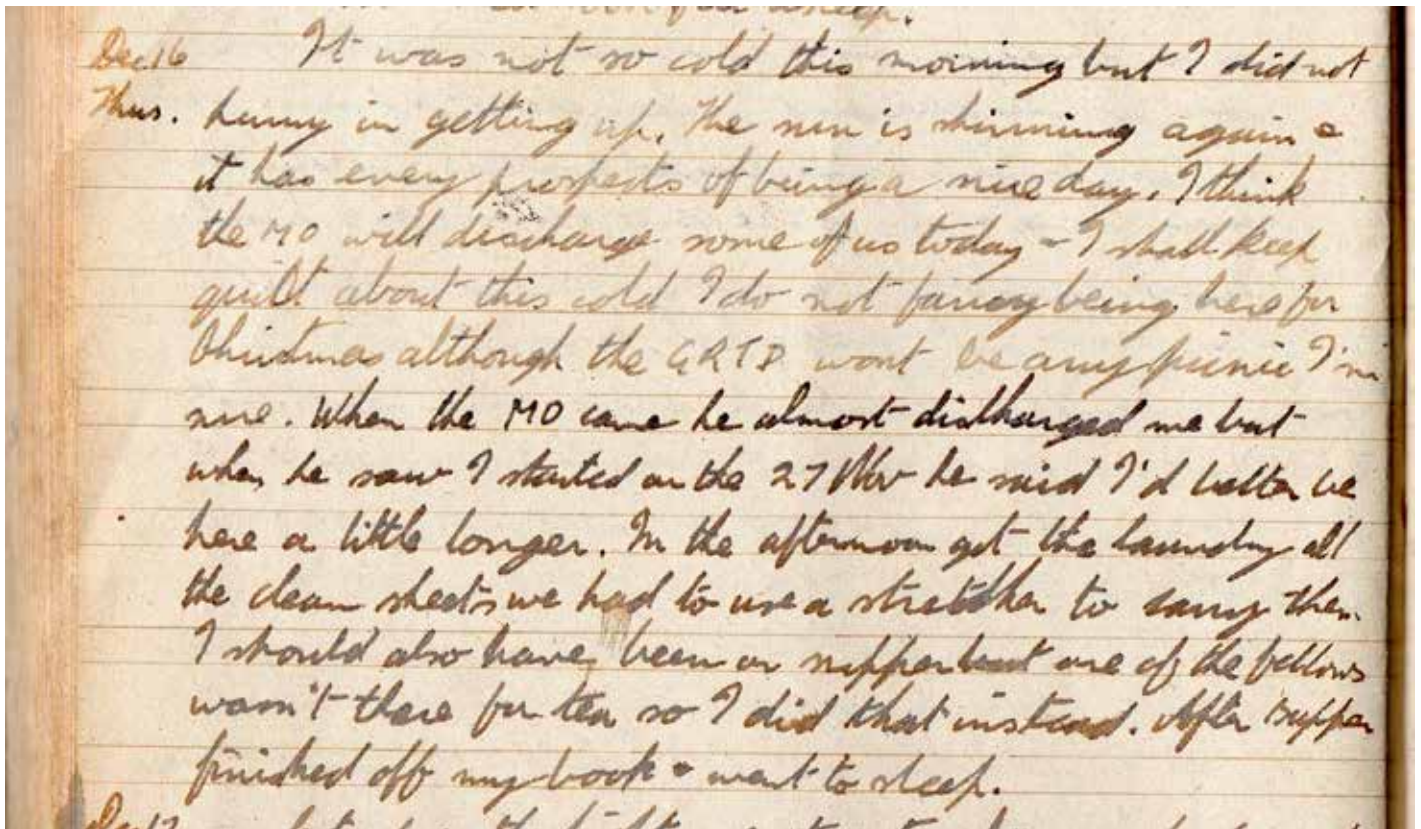 asleep.
Dec 16 It was not so cold this morning but I did not
Thus. hurry in getting up. The sun is shinning again &
it has every prospects of being a nice day. I think
the MO will discharge some of us today - I shall keep
quitt about this cold I do not fancy being here for
Christmas although the GRTD wont be any picnic I'm
sure. When the MO came he almost discharged me but
when he saw I started on the 27 Nov he said I'd better be
here a little longer. In the afternoon got the laundry all
the clean sheets we had to use a stretcher to carry them.
I should also have been on supper but one of the fellows
wasn't there for tea so I did that instead. After supper
finished off my book & went to sleep.
Dec 17